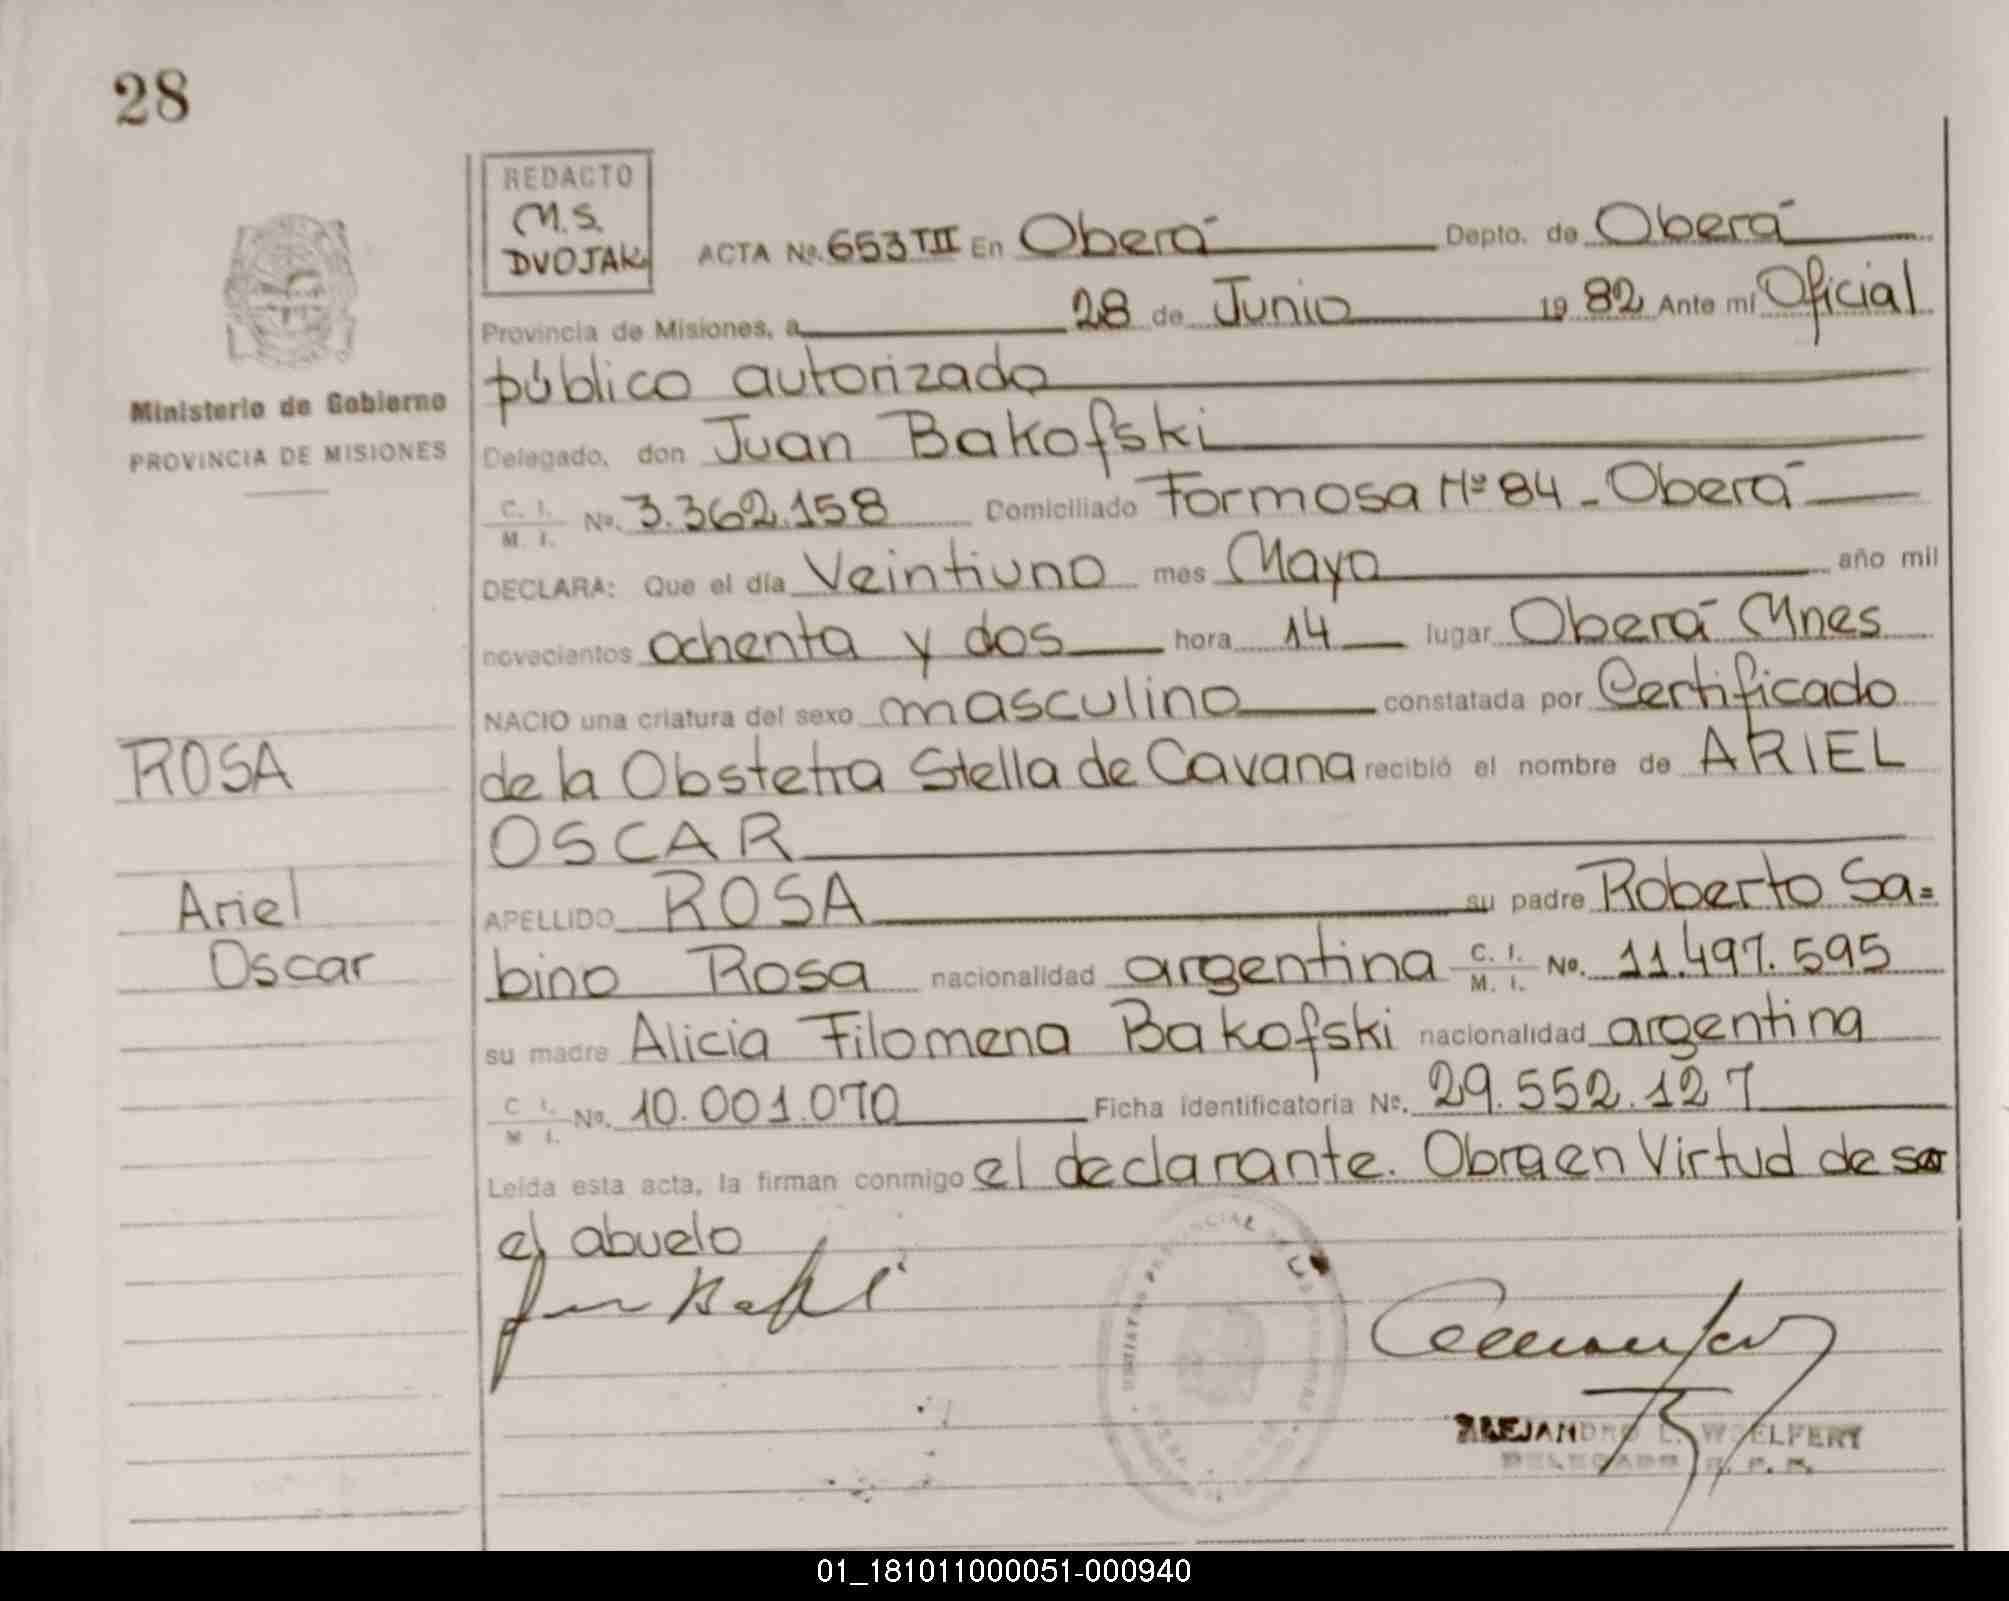 28
REDACTO
M.S.
DVOJAK
ACTA Nº. 653 TII En Oberá Depto. de Oberá
Provincia de Misiones, a 28 de Junio 19 82 Ante mí Oficial
público autorizado
Ministerio de Gobierno
PROVINCIA DE MISIONES
Delegado, don Juan Bakofski
C. I. M. I. Nº. 3.362.158 Domiciliado Formosa Nº 84 - Oberá
DECLARA: Que el día Veintiuno mes Mayo año mil
novecientos ochenta y dos hora 14 lugar Oberá Mnes
NACIO una criatura del sexo masculino constatada por Certificado
ROSA
de la Obstetra Stella de Cavana recibió el nombre de ARIEL
OSCAR
Ariel
Oscar
APELLIDO ROSA su padre Roberto Sa=
bino Rosa nacionalidad argentina C. I. M. I. Nº. 11.497.595
su madre Alicia Filomena Bakofski nacionalidad argentina
C. I. M. I. Nº. 10.001.070 Ficha identificatoria Nº. 29.552.127
Leída esta acta, la firman conmigo el declarante. Obra en Virtud de ser
el abuelo
ALEJANDRO L. WOELFERT
DELEGADO R. P. P.
01_181011000051-000940